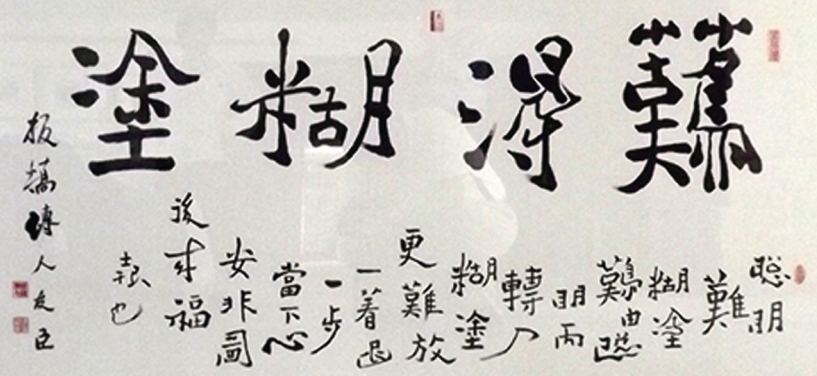 難得糊塗
聰明
難
糊塗
難由聰
明而
轉入
糊塗
更難放
一著退
一步
當下心
安非圖
後來福
報也
板橋傳人